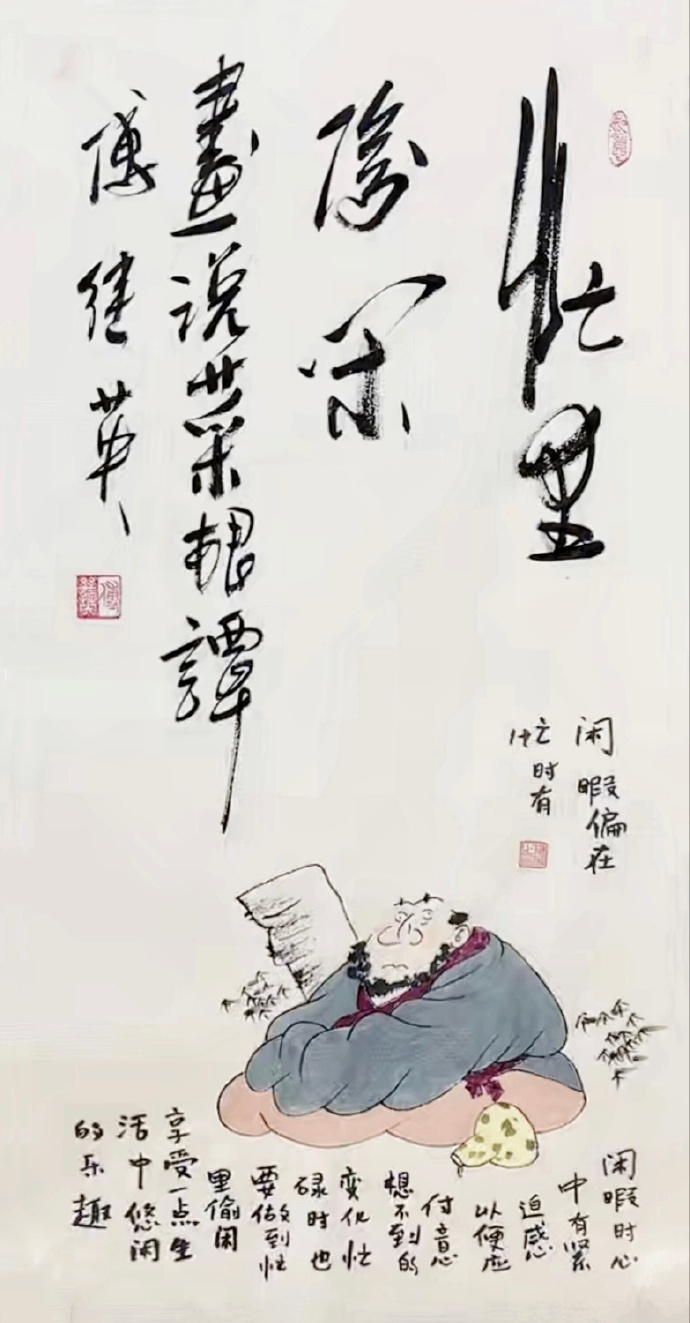 忙里
偷闲
畫说菜根譚
傅继英
闲暇偏在
忙时有
闲暇时心
中有紧
迫感
以便应
付意
想不到的
变化忙
碌时也
要做到忙
里偷闲
享受一点生
活中悠闲
的乐趣